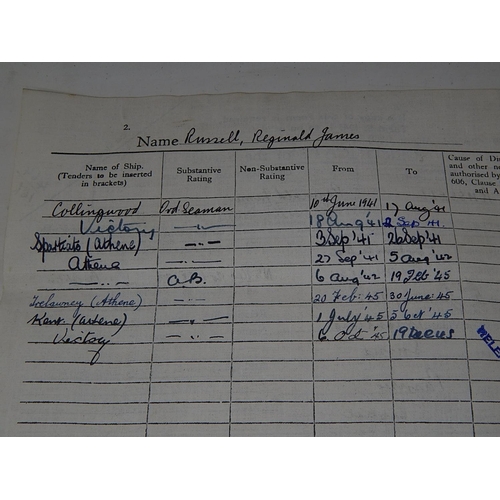 2.
Name Russell, Reginald James
Name of Ship. (Tenders to be inserted in brackets) Substantive Rating Non-Substantive Rating From To Cause of Di
and other no
authorised by
606, Clause
and A
Collingwood Ord Seaman 10th June 1941 17 Aug '41
Victory —"— 18 Aug '41 2 Sep '41
(Athene) —"— 3 Sep '41 26 Sep '41
Athene —"— 27 Sep '41 5 Aug '42
—"— A.B. 6 Aug '42 19 Feb '45
Trelawney (Athene) —"— 20 Feb: 45 30 June: 45
Kent. (Athene) —"— 1 July '45 5 Oct '45
Victory —"— 6 Oct '45 19